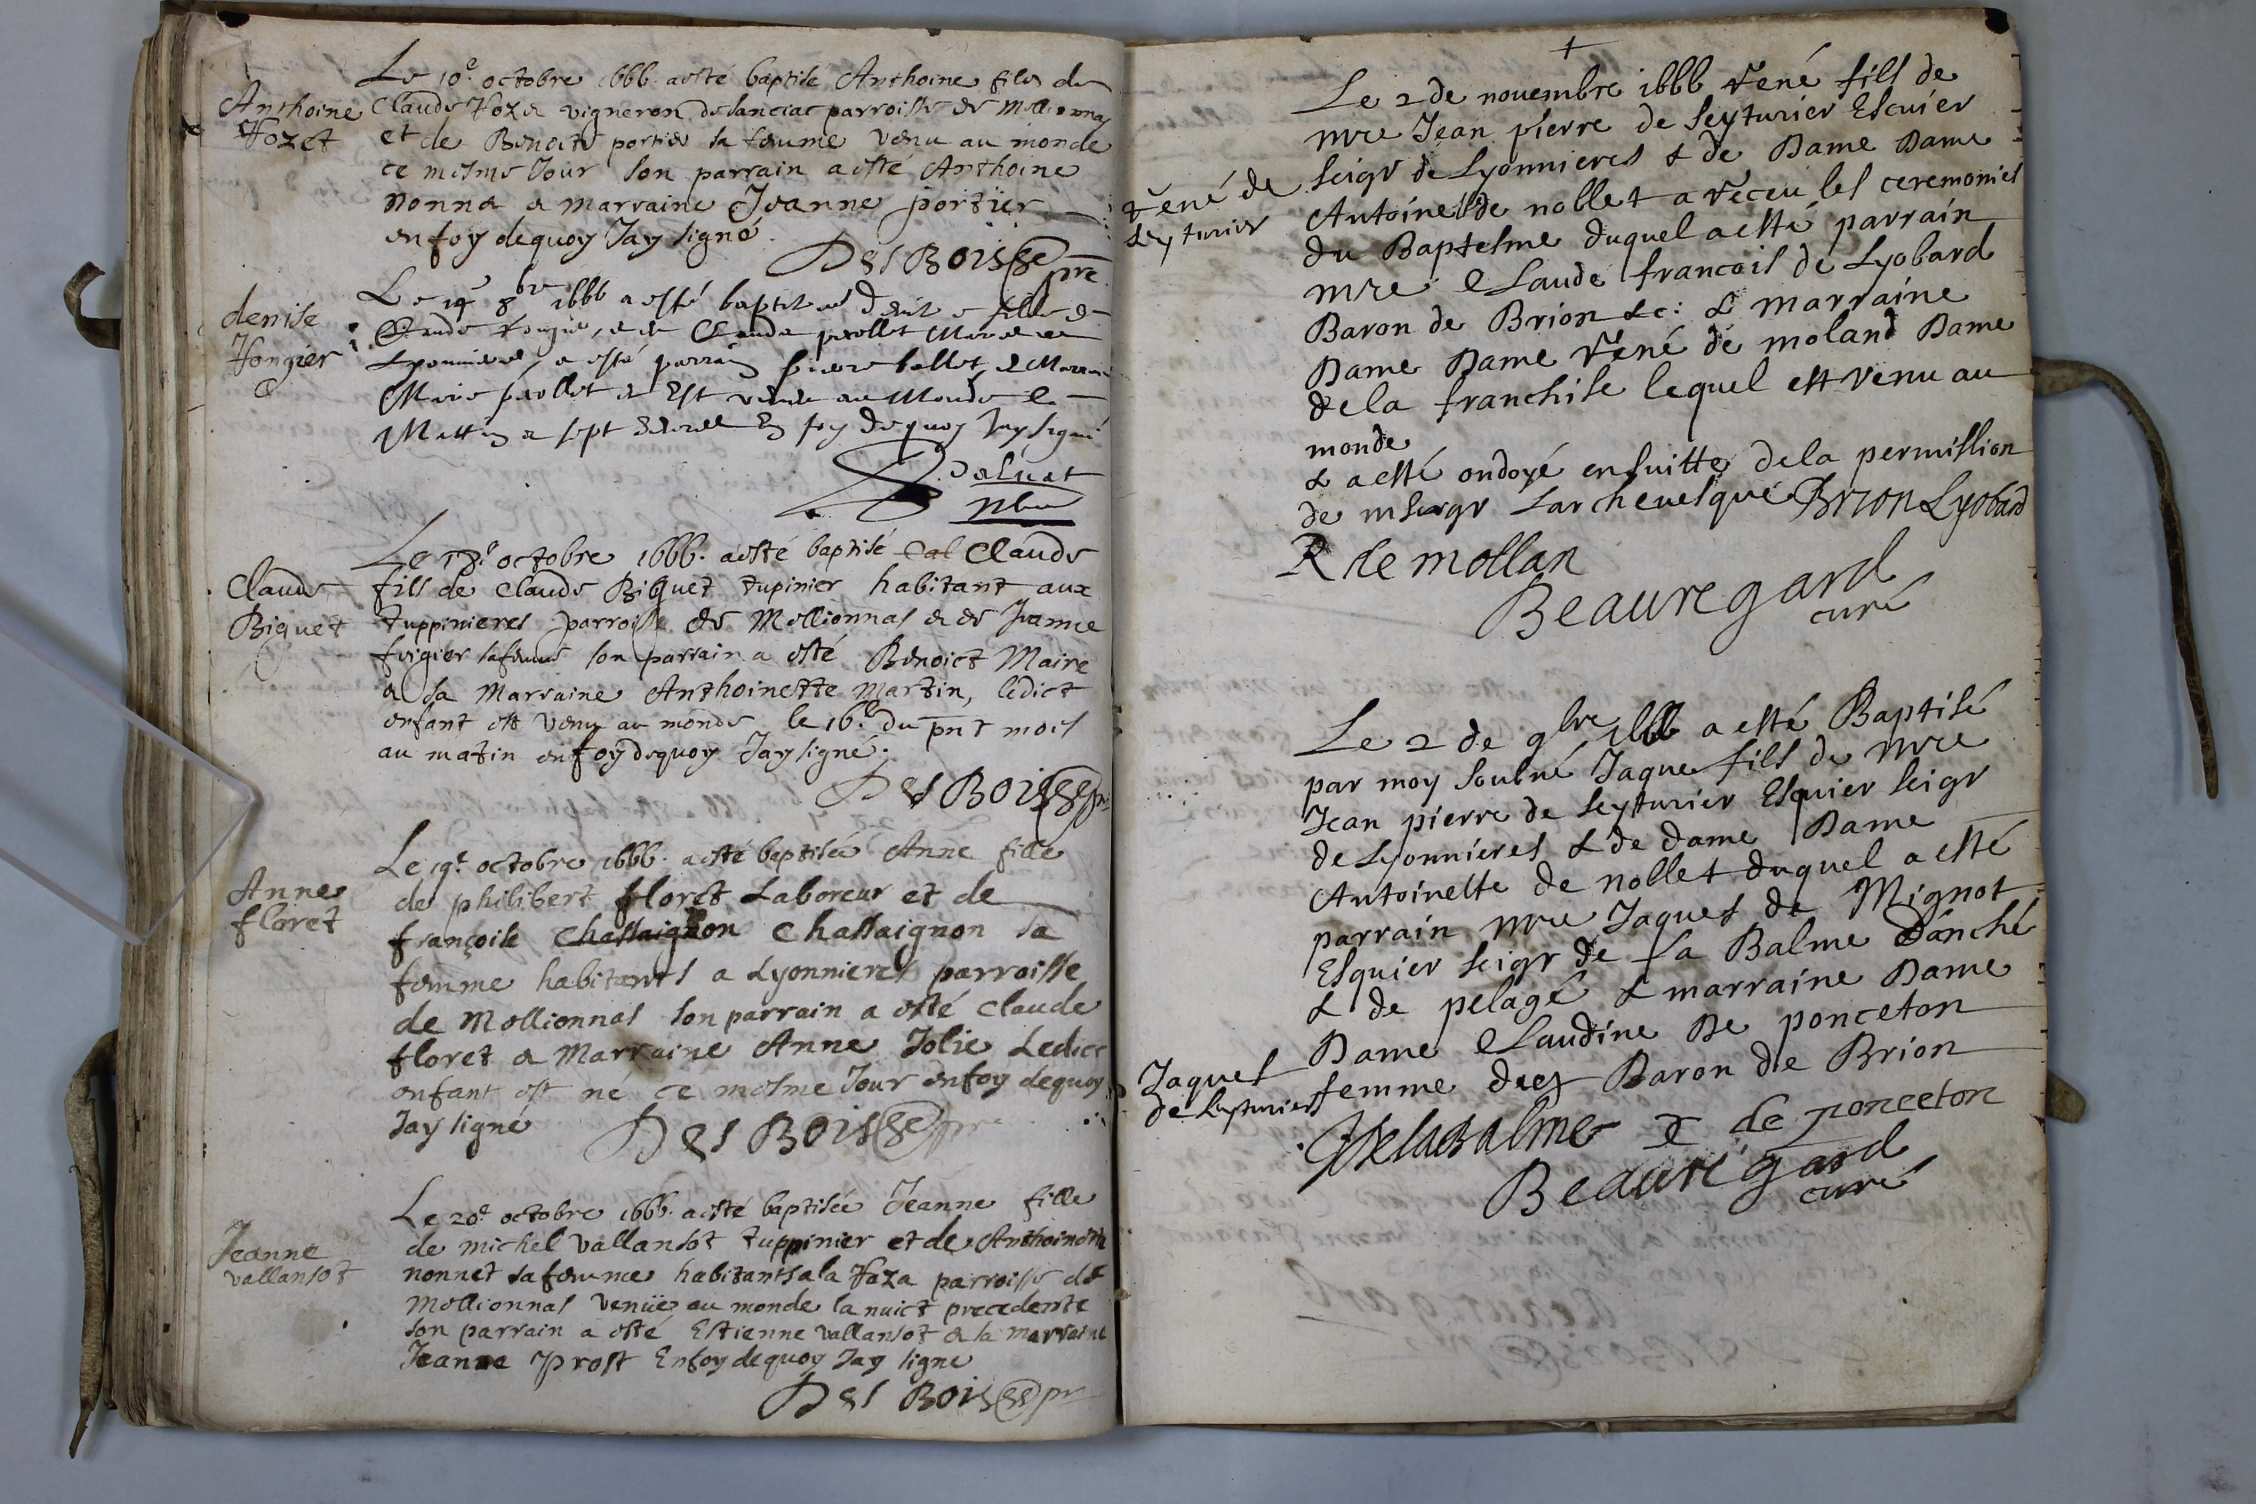 Le 10e. octobre 1666. a esté baptisé Anthoine fils de
Anthoine
Claude Foze vigneron de lanciat parroisse de Mollionnas
Fozet
et de Benoite portier sa femme venu au monde
ce mesme Jour son parrain a esté Anthoine
nonna & marraine Jeanne portier
en foy dequoy Jay signé.
Des Boisse pre.
Le 14e 8bre 1666 a esté baptisée denise fille de
denise
Claude fongier, et de Claude perollet
fongier
Lyonnieres, a esté parrain bollet, & Marraine
Marie perollet & Est venue au Monde le
Mattin a sept En foy De quoy Jay signé
Le 18e. octobre 1666. a esté baptisé Claude
Claude
fils de Claude Biguet tupinier habitant aux
Biguet
tuppinieres parroisse de Mollionnas & de Jeanne
fongier sa femme son parrain a esté Benoict Maire
& sa Marraine Anthoinette Martin, ledict
enfant est venu au monde le 16e. du pnt mois
au matin en foy dequoy Jay signé.
Des Boisse pre
Le 19e. octobre 1666. a esté baptisée Anne fille
Anne
de philibert floret Laboreur et de
floret
françoise Chassaignon Chassaignon sa
femme habitants a Lyonnieres parroisse
de Mollionnas son parrain a esté Claude
floret & Marraine Anne Jolie Ledict
enfant est né ce mesme Jour en foy dequoy
Jay signé
Des Boisse pre
Le 20e. octobre 1666. a esté baptisée Jeanne fille
Jeanne
de michel vallansot tuppinier et de Anthoinette
vallansot
nonnet sa femme habitants a la Faza parroisse de
Mollionnas venüe au monde la nuict precedente
son parrain a esté Estienne vallansot & la marraine
Jeanne Prost En foy de quoy Jay signé
Des Boisse pr
+
Le 2 de novembre 1666 René fils de
mre Jean pierre de seyturier Escuier
seigr de Lyonnieres & de Dame Dame
René de
Antoinette de nollet a receu les ceremonies
seyturier
du Baptesme duquel a esté parrain
mre Claude francois de Lyobard
Baron de Brion &c: & marraine
Dame Dame René de moland Dame
de la franchise lequel est venu au
monde
& a esté ondoyé en suitte de la permission
de mseigr Larchevesque Brion Lyobard
R de mollan
Beauregard
curé
Le 2 de 9bre 1666 a esté Baptisé
par moy soubné Jaque fils de mre
Jean pierre de seyturier Esquier seigr
de Lyonnieres & de dame Dame
Antoinette de nollet duquel a esté
parrain mre Jaques de Mignot
Esquier seigr de La Balme Danché
& de pelagé & marraine Dame
Dame Claudine De ponceton
Jaques
femme duet Baron de Brion
de seyturier
De la Balme C de ponceton
Beauregard
curé